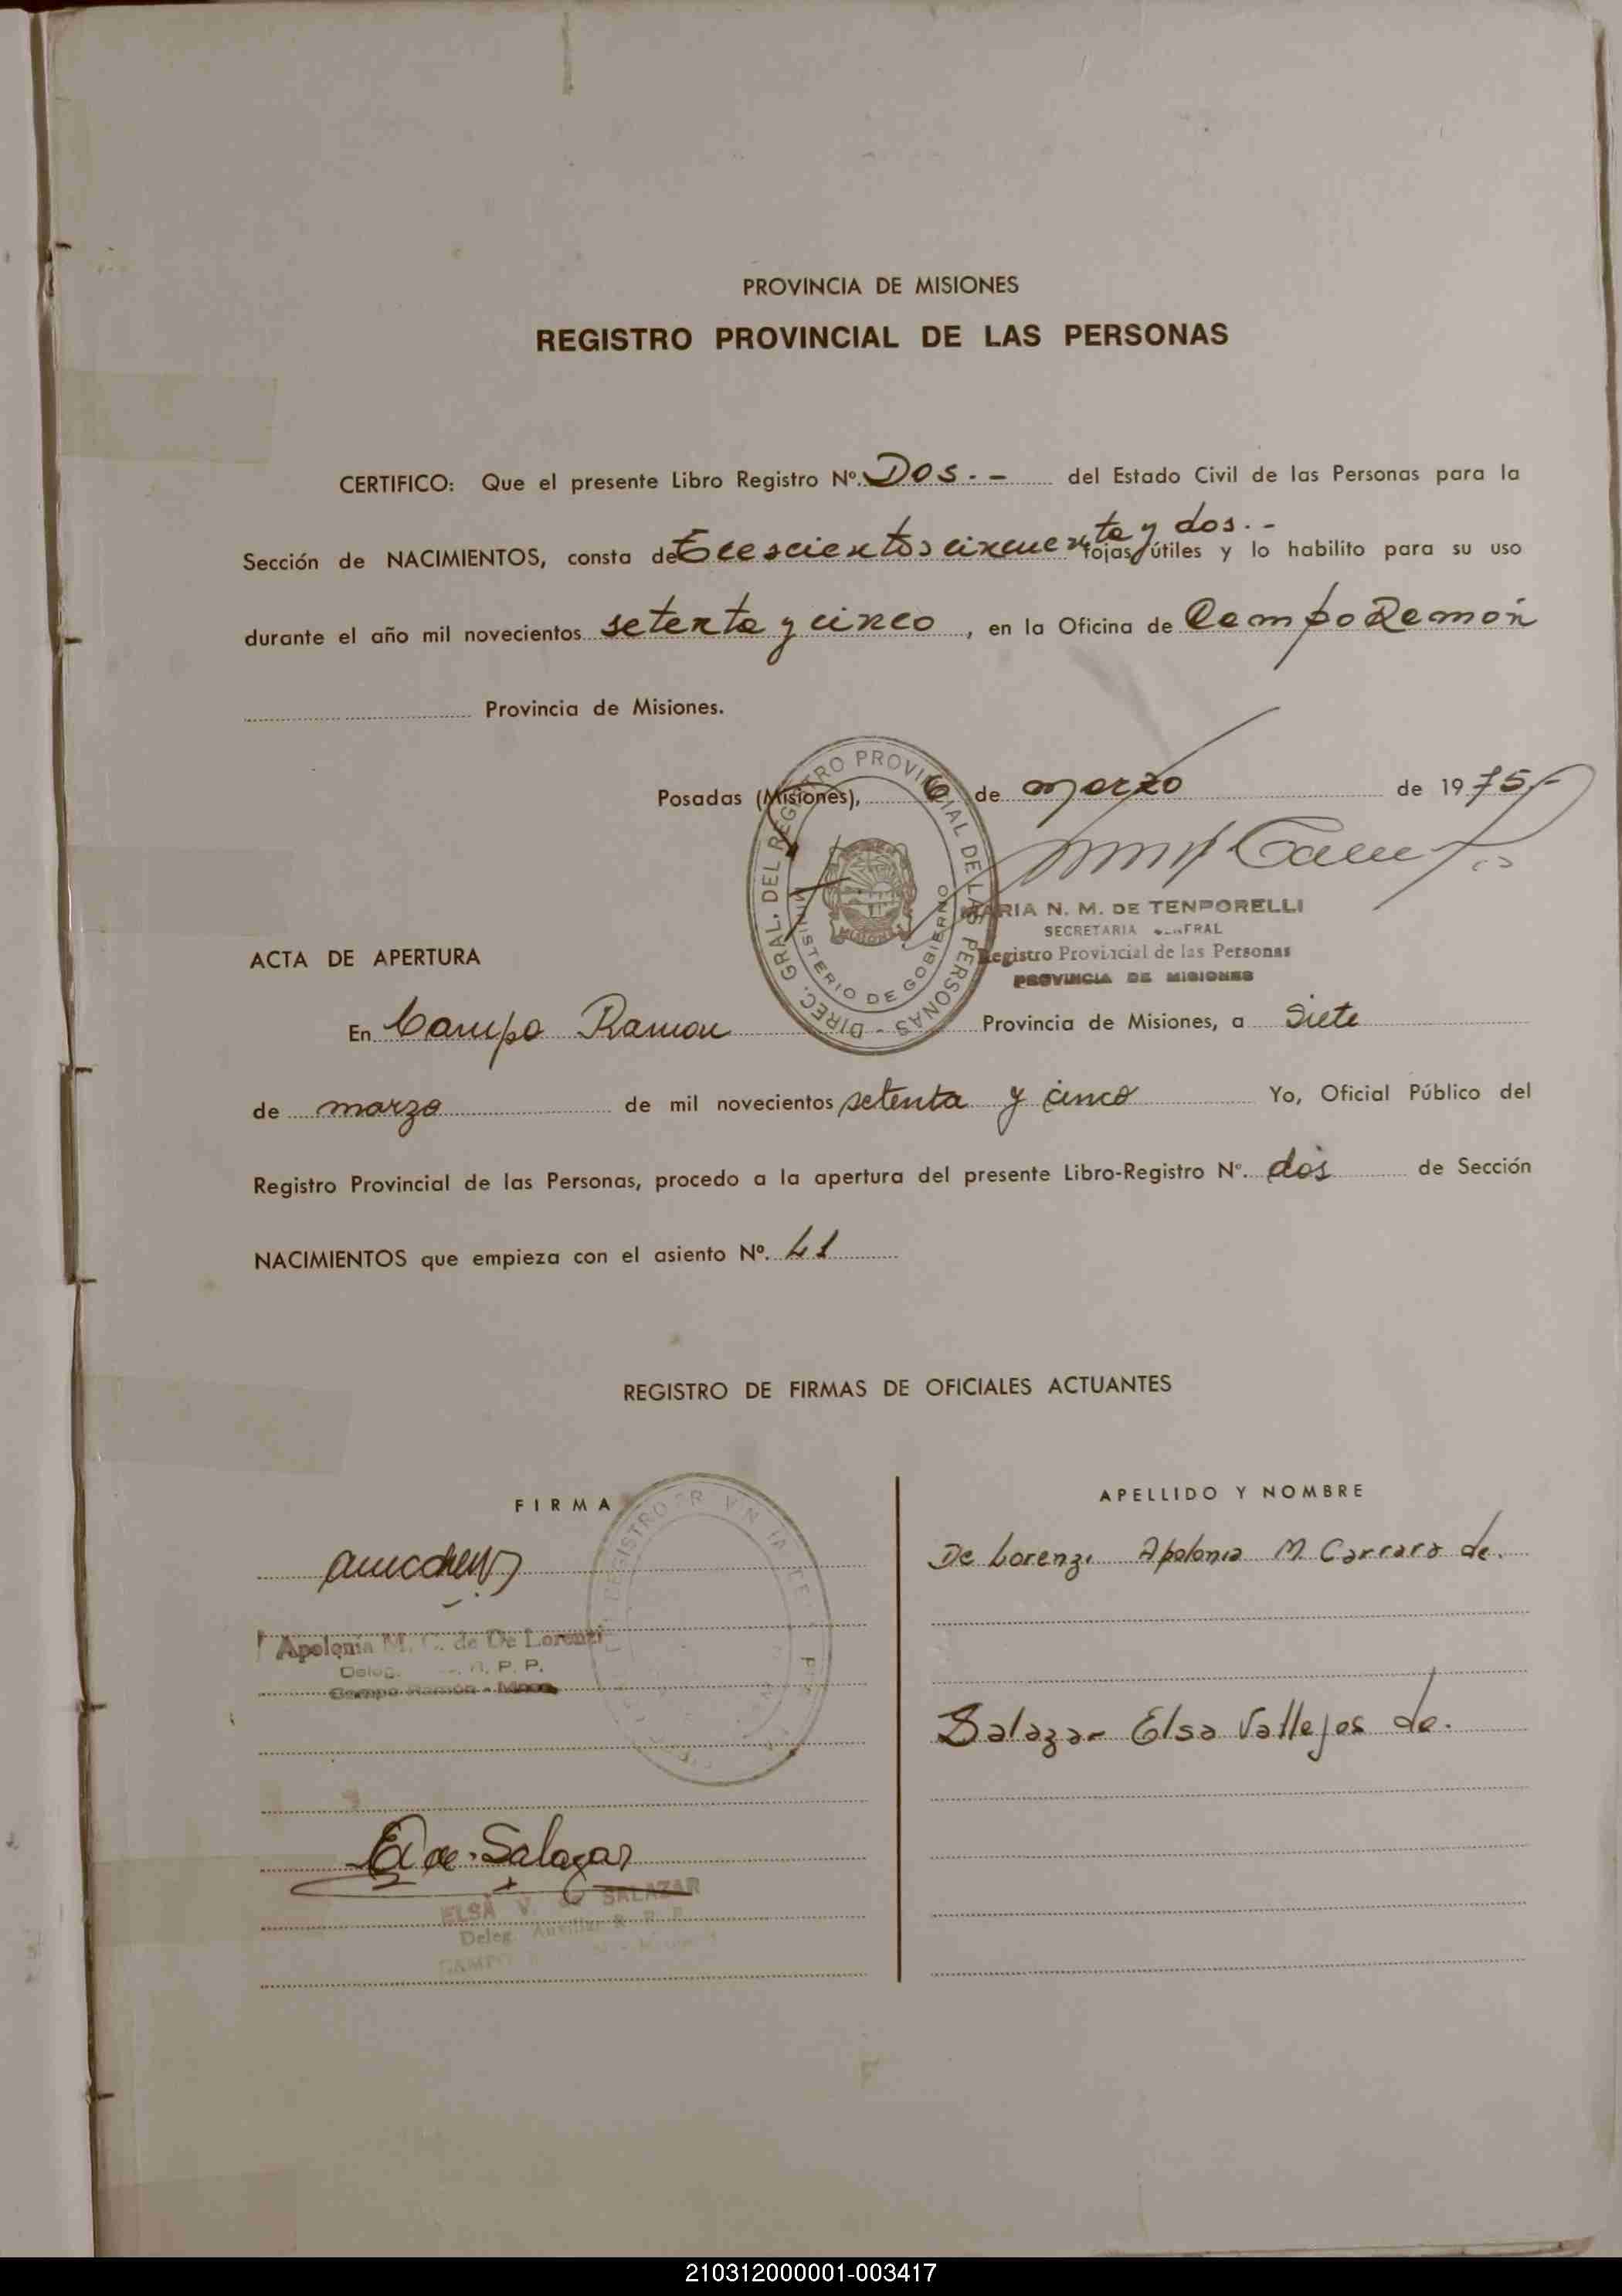 PROVINCIA DE MISIONES
REGISTRO PROVINCIAL DE LAS PERSONAS
CERTIFICO: Que el presente Libro Registro Nº. Dos.- del Estado Civil de las Personas para la
Sección de NACIMIENTOS, consta de Trescientos cincuenta y dos.- fojas útiles y lo habilito para su uso
durante el año mil novecientos setenta y cinco, en la Oficina de Campo Ramón
Provincia de Misiones.
Posadas (Misiones), 6 de marzo de 1975.-
DIREC. GRAL. DEL REGISTRO PROVINCIAL DE LAS PERSONAS -
MINISTERIO DE GOBIERNO
MISIONES
MARIA N. M. DE TENPORELLI
SECRETARIA GENERAL
Registro Provincial de las Personas
PROVINCIA DE MISIONES
ACTA DE APERTURA
En Campo Ramon Provincia de Misiones, a Siete
de marzo de mil novecientos setenta y cinco Yo, Oficial Público del
Registro Provincial de las Personas, procedo a la apertura del presente Libro-Registro Nº. dos de Sección
NACIMIENTOS que empieza con el asiento Nº. 41
REGISTRO DE FIRMAS DE OFICIALES ACTUANTES
FIRMA
APELLIDO Y NOMBRE
De Lorenzi Apolonia M Carrara de.
Apolonia M. C. de De Lorenzi
Deleg. R. P. P.
Campo Ramón - Mnes.
Salazar Elsa Vallejos de.
E. de Salazar
ELSA V. de SALAZAR
Deleg. Auxiliar R. P. P.
CAMPO
210312000001-003417